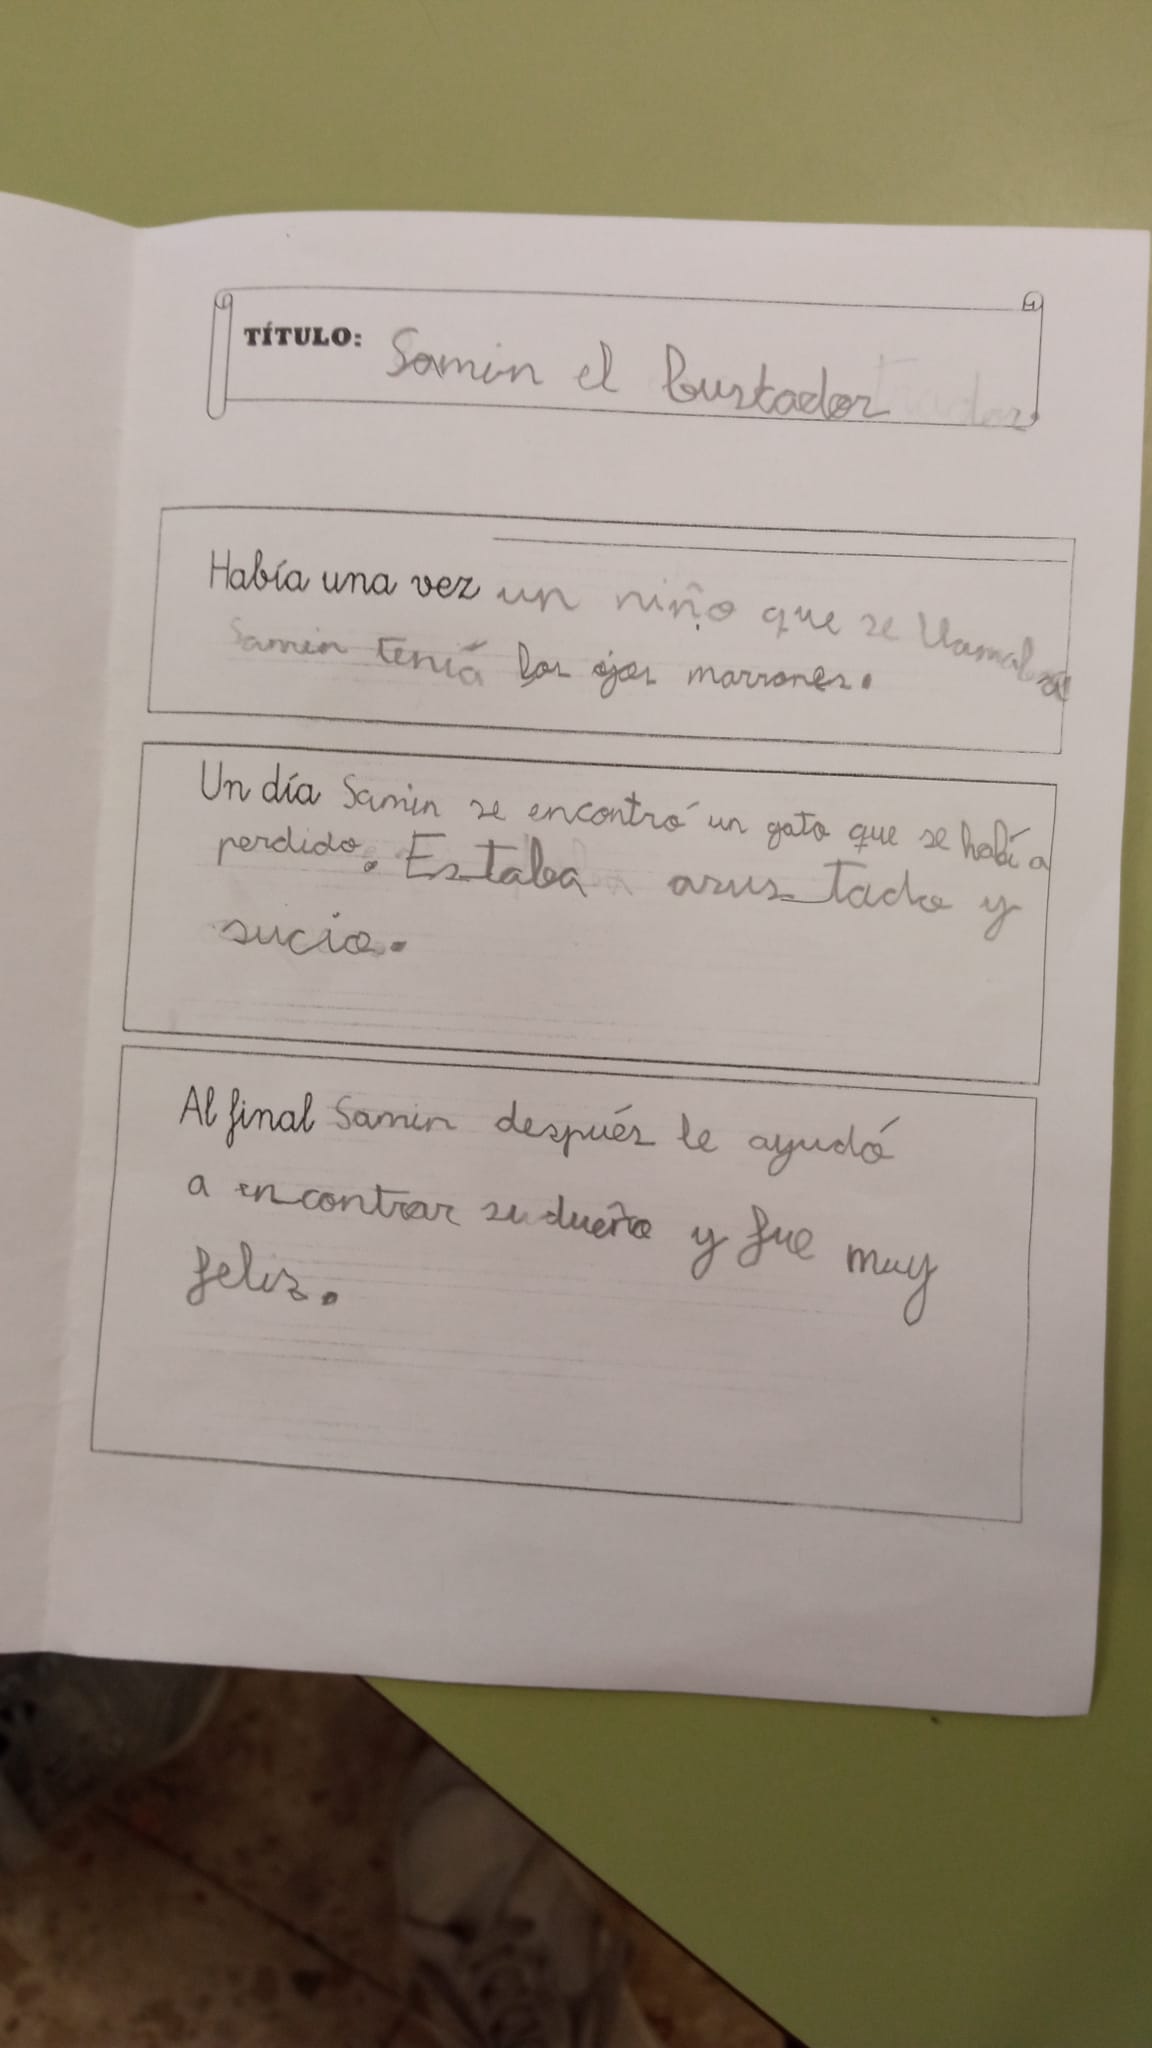 TÍTULO: Samin el bustador
Había una vez un niño que se llamaba
Samin tenía los ojos marrones.
Un día Samin se encontró un gato que se había
perdido. Estaba asustado y
sucio.
Al final Samin después le ayudó
a encontrar su dueño y fue muy
feliz.